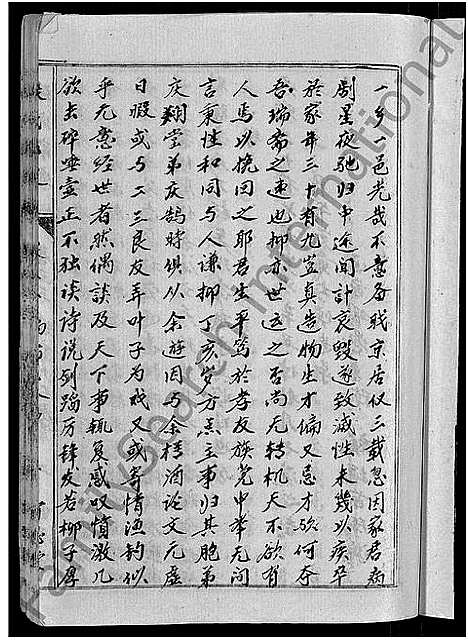 一乡一邑光哉不意备职京居仅三载忽因家君病
剧星夜驰归中途闻讣哀毁逾致灭性未几以疾卒
於家年三十有九岂真造物生才偏又忌才欤何夺
吾瑞斋之速也抑亦世运之否尚无转机天不欲有
人焉以挽回之耶君生平笃於孝友族党中举无间
言秉性和同与人谦抑丁亥岁方点主事归其胞弟
庆翔堂弟庆鹄时俱从余游因与余樽酒论文无虚
日暇或与二三良友弄叶子为戏又或寄情渔钓似
乎无意经世者然偶谈及天下事辄复感叹愤激几
欲击碎唾壶正不独谈诗说剑踔厉锋发若柳子厚
FamilySearch International